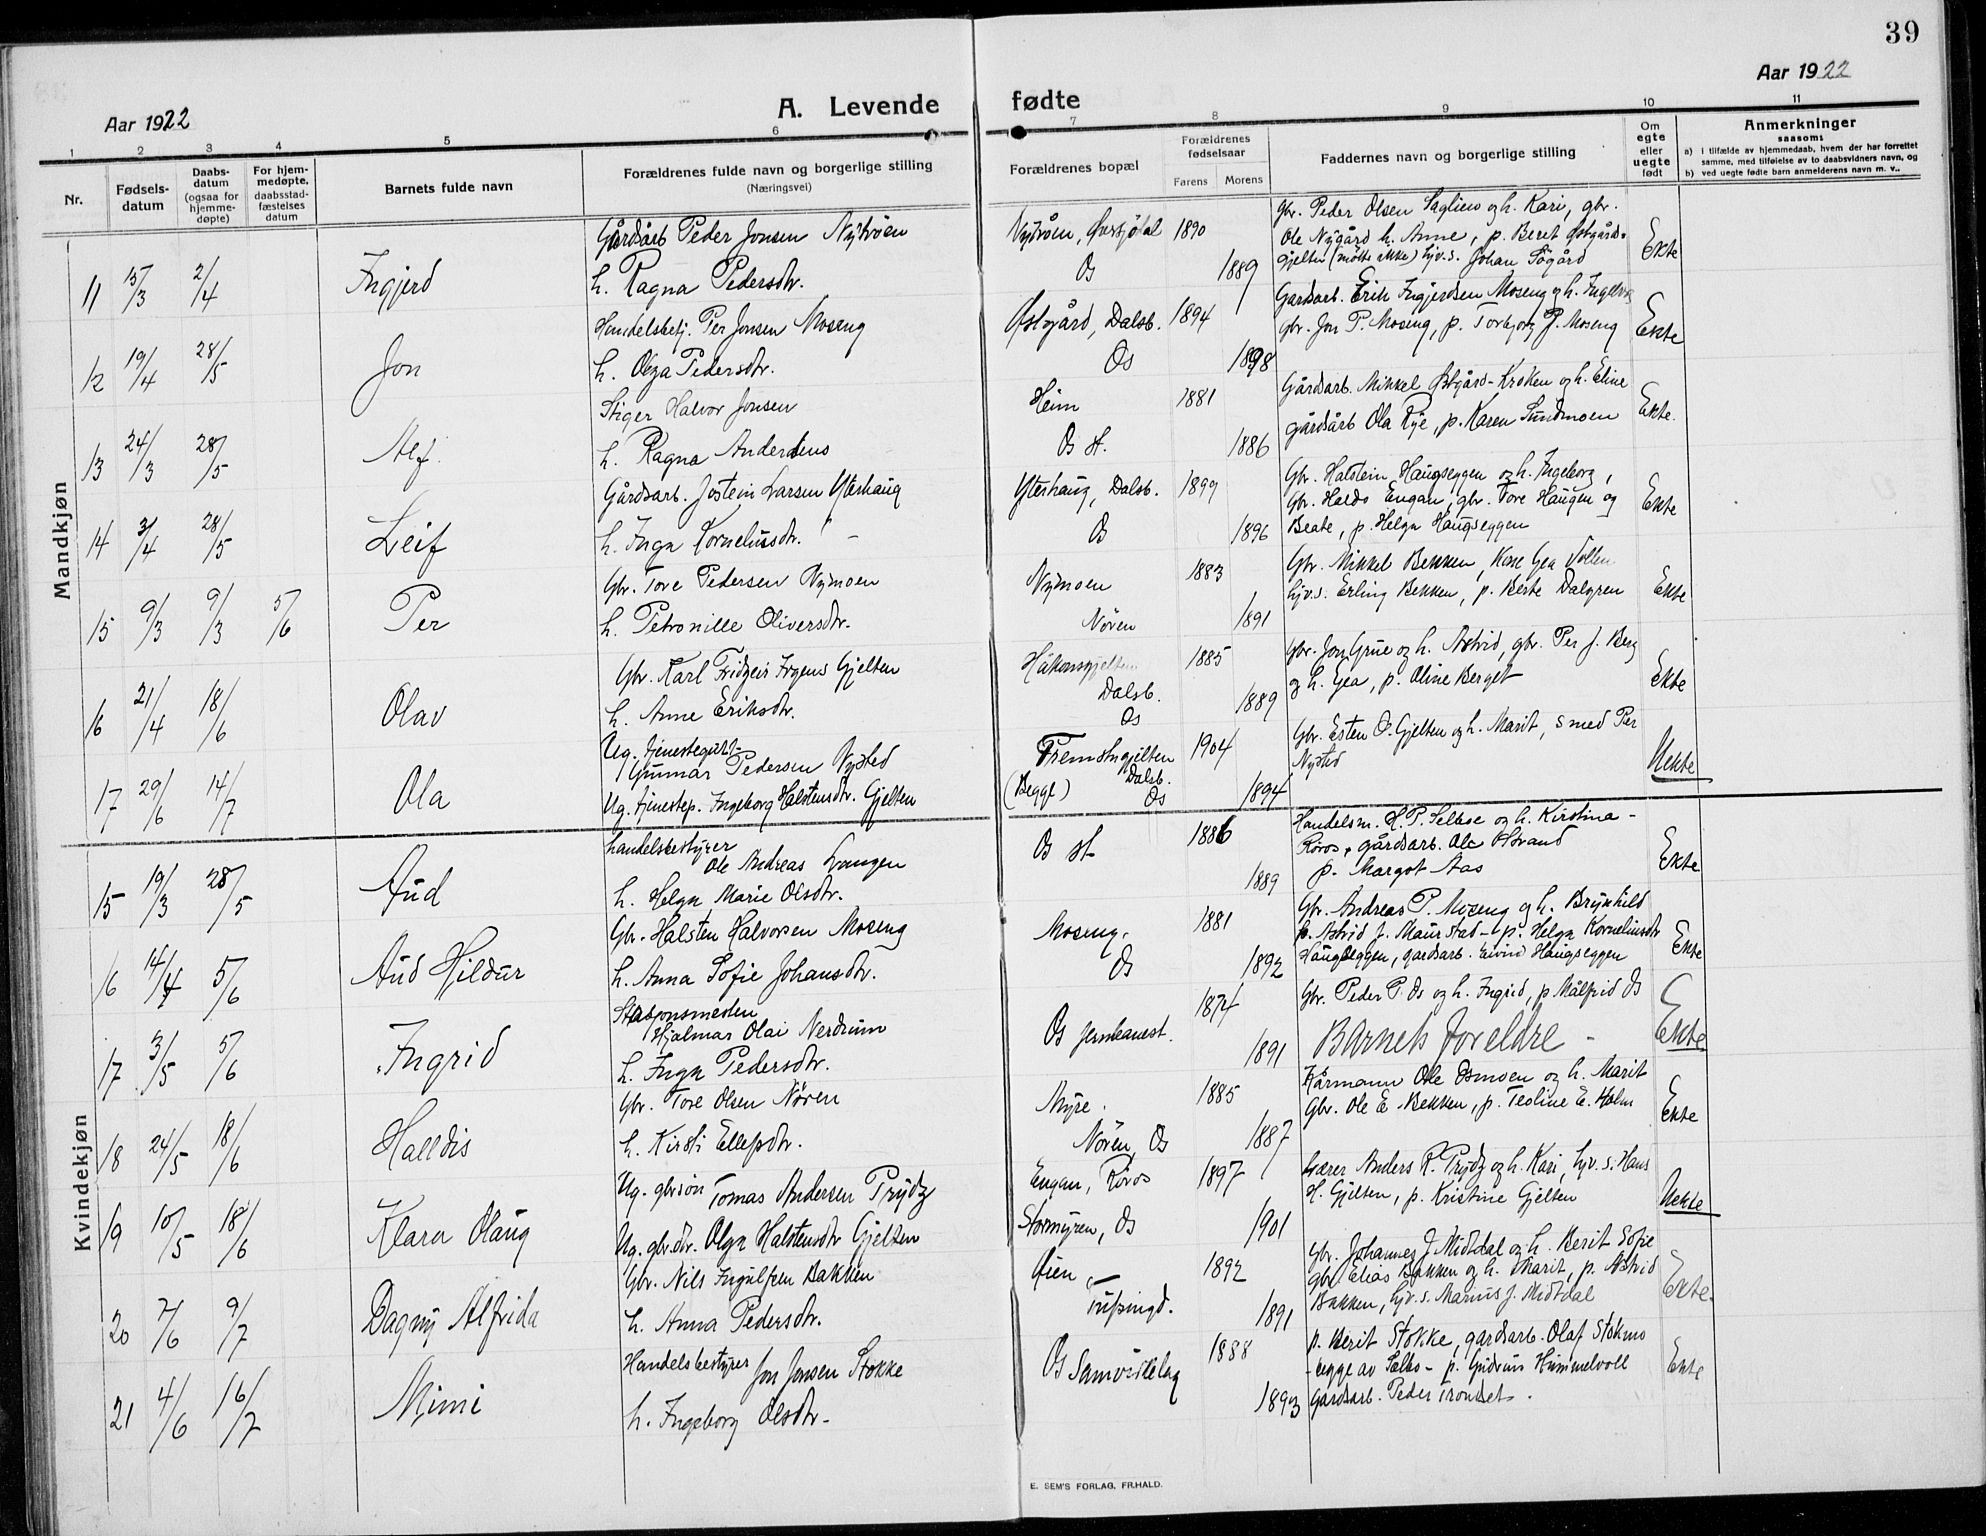 39
Aar 1922
A. Levende fødte
Aar 1922
1 2 3 4 5 6 7 8 9 10 11
Nr.
Fødsels-
datum
Daabs-
datum
(ogsaa for
hjemme-
døpte)
For hjem-
medøpte,
daabsstad-
fæstelses
datum
Barnets fulde navn
Forældrenes fulde navn og borgerlige stilling
(Næringsvei)
Forældrenes bopæl
Forældrenes
fødselsaar
Farens Morens
Faddernes navn og borgerlige stilling
Om
egte
eller
uegte
født
Anmerkninger
saasom:
a) i tilfælde av hjemmedaab, hvem der har forrettet
samme, med tilføielse av to daabsvidners navn, og
b) ved uegte fødte barn anmelderens navn m. v..
Mandkjøn
11 15/3 2/4 Ingjerd
Gårdsarb Peder Jonsen Nytrøen
h. Ragna Pedersdtr.
Nytrøen,
Os
1890
1889
Gbr. Peder Olsen og h. Kari, gbr.
Ole Nygård h. Anne, p. Beret Østgårds-
gjelten (møtte ikke) hjv.s. Johan Søgård
Ekte
12 19/4 28/5 Jon
Handelsbetj. Per Jonsen Moseng
h. Olga Pedersdtr.
Østgård, Dalsb.
Os
1894
1898
Gardsarb. Erik Ingjerdsen Moseng og h.
gbr. Jon P. Moseng, p. Torbjørg P. Moseng
Ekte
13 24/3 28/5 Alf.
Stiger Halvor Jonsen
h. Ragna
Heim
Os st.
1881
1886
Gårdsarb. Mikkel Østgård-Kroken og h. Eline
gårdsarb Ola Rye, p. Karen Sundmoen
Ekte.
14 3/4 28/5 Leif
Gårdsarb. Jostein Larsen Ytterhaug
h. Inga Korneliusdtr. " -
Ytterhaug, Dalsb.
Os
1899
1896
Gbr. Halstein Haugseggen og h. Ingeborg,
Gbr. Haldo Engan, gbr. Tore Haugen og
Beate, p. Helga Haugseggen
Ekte
15 9/3 9/3 5/6 Per
Gbr. Tore Pedersen Nymoen
h. Petronille Oliversdtr.
Nymoen
Nøren
1883
1891
Gbr. Mikkel Bekken, Kone Gea Vollen
hjv.s. Erling Bekken, p. Berte Dalgren
Ekte
16 21/4 18/6 Olav
Gbr. Karl Fridgeir Irgens Gjelten
h. Anne Eriksdtr.
Håkonsgjelten
Dalsb.
Os
1885
1889
Gbr. Jon Grue og h. Astrid, gbr. Per J. Berg
og h. Gea, p. Oline Berget
Ekte
17 29/6 14/7 Ola
Ug. tjenestegutt
Gunnar Pedersen Nysted
Ug. tjenestep. Ingeborg Halstensdtr. Gjelten
Fremstugjelten
(Begge) Dalsb.
Os
1904
1894
Gbr. Esten O. Gjelten og h. Marit, smed Per
Nysted
Uekte
Kvindekjøn
15 19/3 28/5 Aud
handelsbestyrer
Ole Andreas Langen
h. Helga Marie Olsdtr.
Os st
1886
1889
Handelsm. H. P. Selboe og h. Kirstina -
Røros, gårdsarb. Ole Østrand
p. Margot Aas
Ekte
16 14/4 5/6 Aud Hildur
Gbr. Halsten Halvorsen Moseng
h. Anna Sofie Johansdtr.
Moseng,
Os
1881
1892
Gbr. Andreas P. Moseng og h. Brynhild
p. Astrid J. Maurstad - p. Helga Korneliusdtr
Haugseggen, gardsarb. Eivind Haugseggen
Ekte
17 3/5 5/6 Ingrid
Stasjonsmesten
Hjalmar Olai Nerdrum
h. Inga Pedersdtr.
Os jernbanest.
1874
1891
Gbr. Peder P. Os og h. Ingrid, p Målfrid Os
Barnets foreldre -
Ekte
18 24/5 18/6 Halldis
Gbr. Tore Olsen Nøren
h. Kirsti Ellefsdtr.
Myre.
Nøren, Os
1885
1887
Kårmann Ole Osmoen og h. Marit
Gbr. Ole E. Bekken, p. Teoline E. Holm
Ekte
19 10/5 18/6 Klara Olaug
Ug. gbrsøn Tomas Andersen Prydz
Ug. gbr.dtr. Olga Halstensdtr Gjelten
Engan, Røros
Stormyren, Os
1897
1901
Lærer Anders R. Prydz og h. Kari, hjv.s. Hans
H. Gjelten, p. Kristine Gjelten
Uekte
20 7/6 9/7 Dagny Alfrida
Gbr. Nils Ingulfsen Bakken
h. Anna Pedersdtr.
Øien,
Tufsingd.
1892
1891
Gbr. Johannes J. Midtdal og h. Berit Sofie
gbr. Elias Bakken og h. Marit, p. Astrid
Bakken, hjv.s. Marius J. Midtdal
Ekte.
21 4/6 16/7 Mimi
Handelsbestyrer Jon Jonsen Stokke
h. Ingeborg Olsdtr -
Os Samvirkelag
1888
1893
p. Berit Stokke, gardsarb. Olaf Stokmo
- begge av Selbo - p. Gudrun Hummelvoll
Gardsarb. Peder Trondset.
Ekte
E. SEM'S FORLAG, FR.HALD.